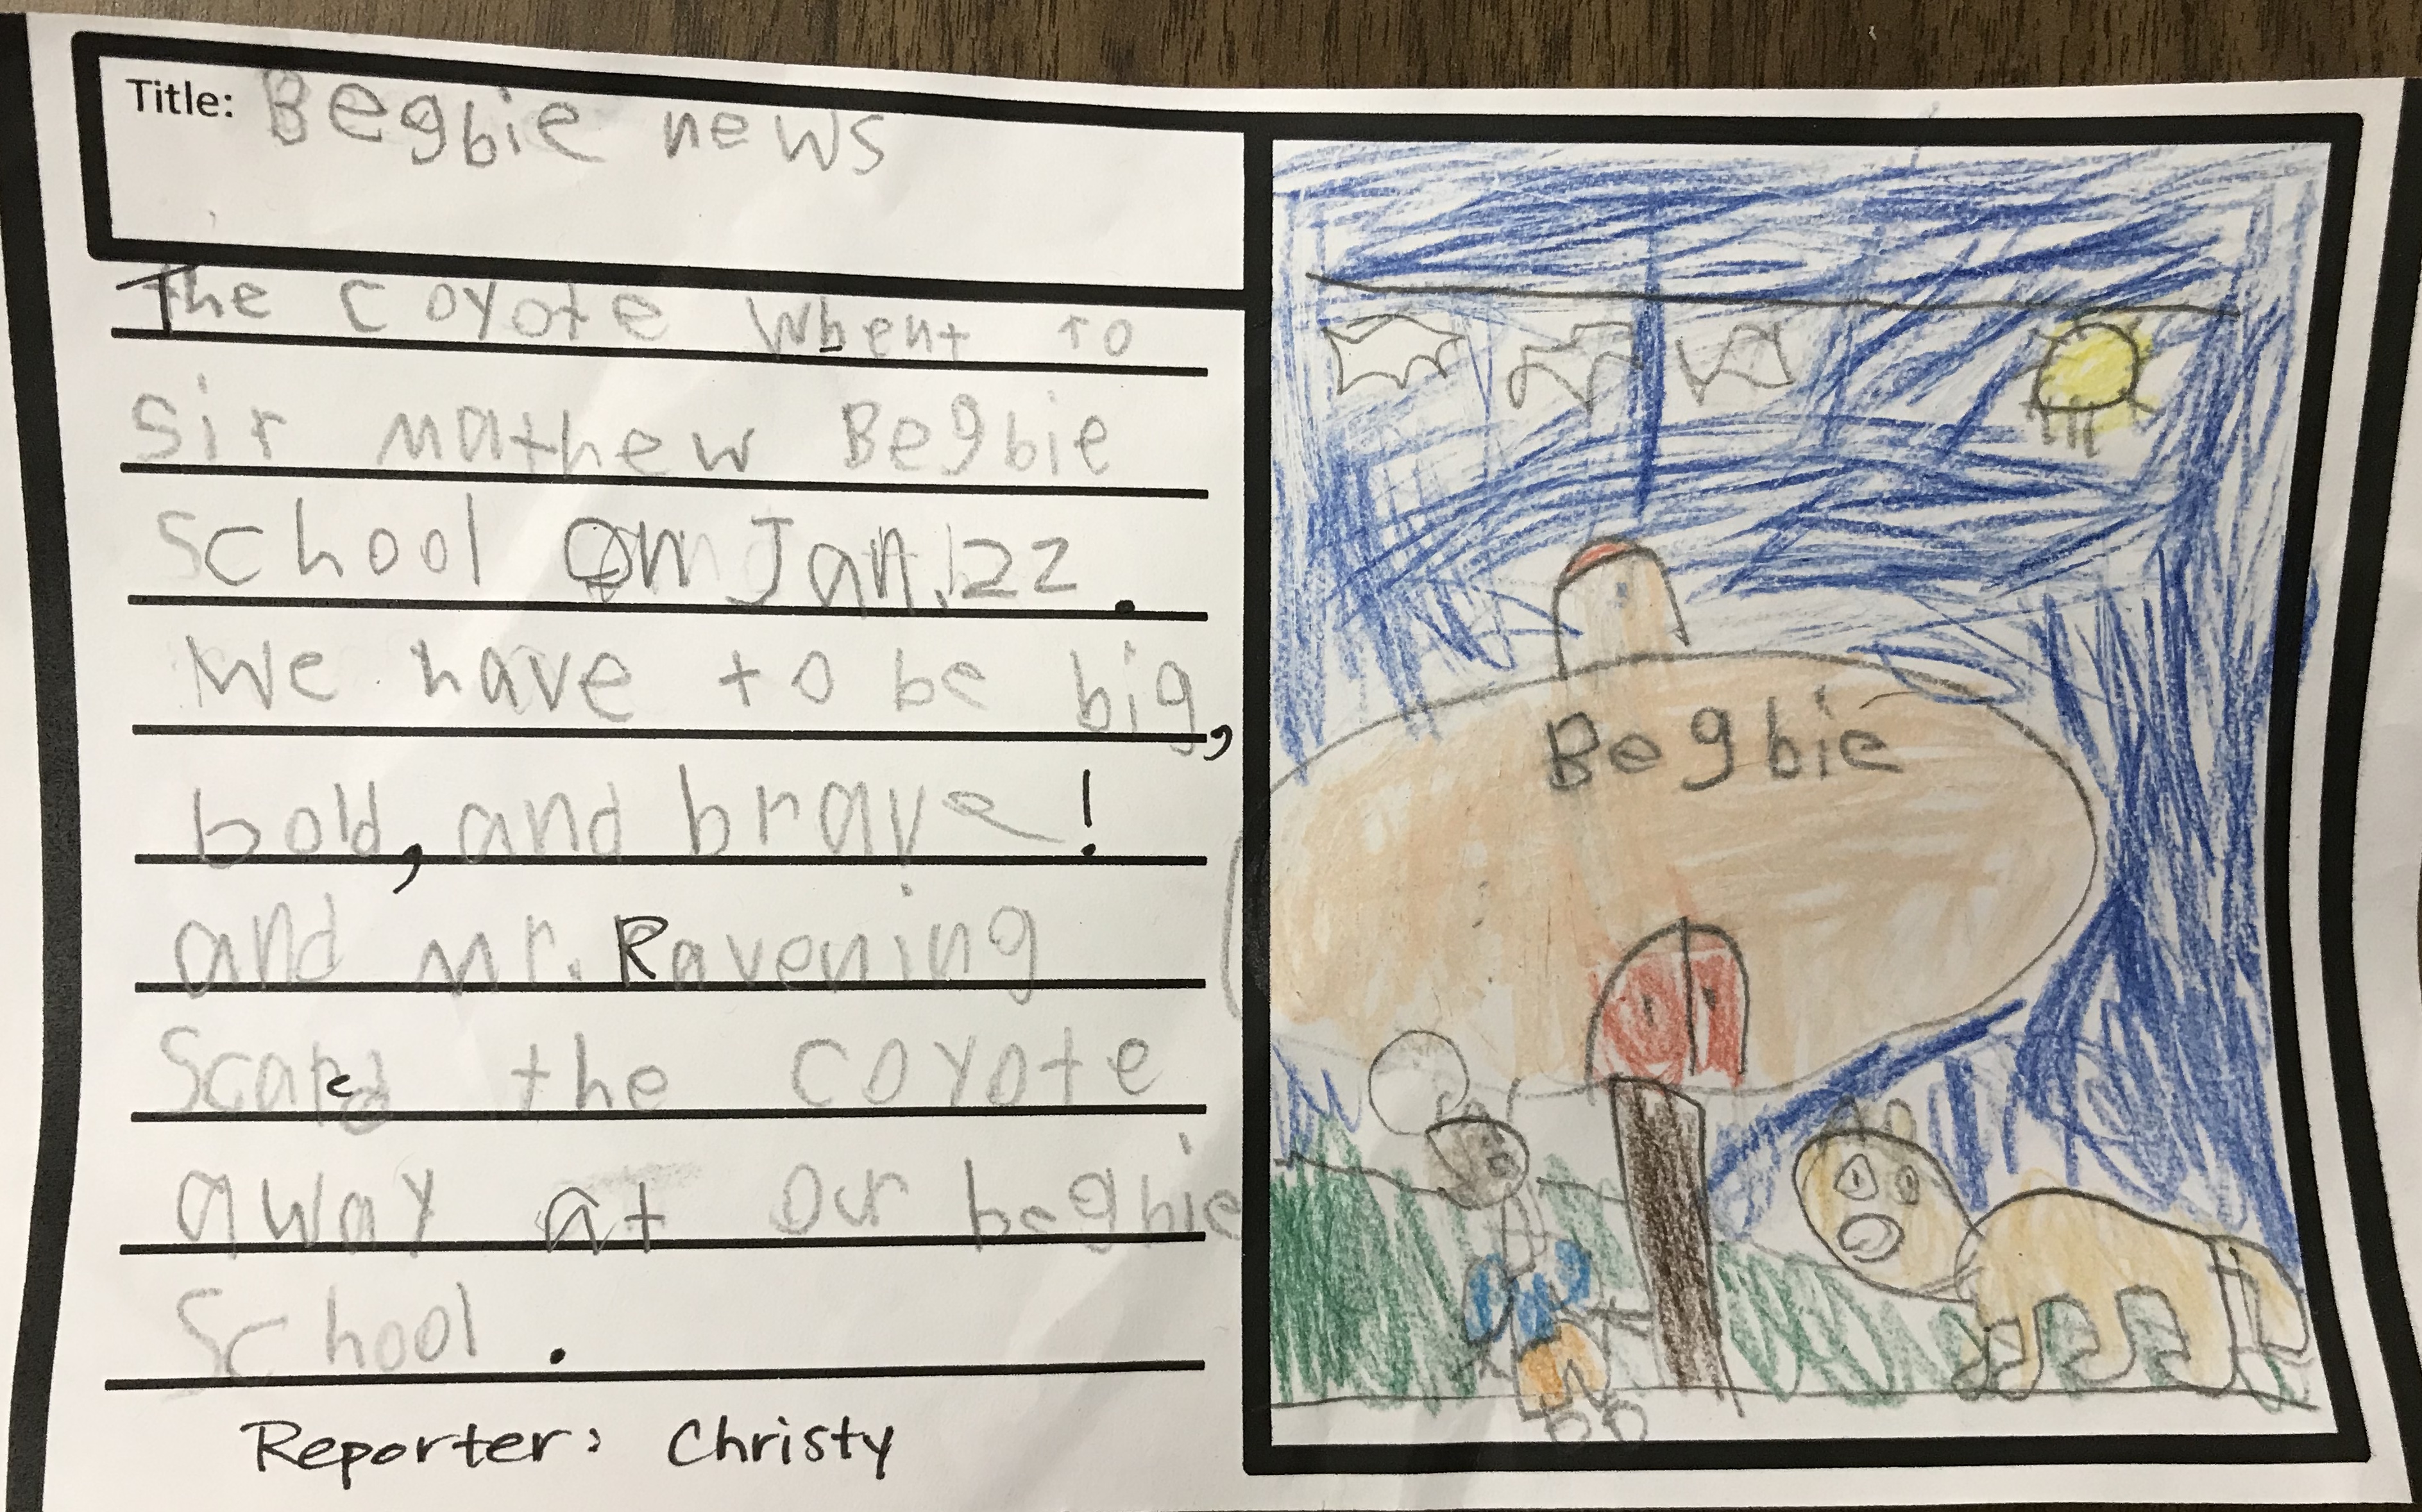 Title: Begbie news
The coyote Whent to
Sir mathew Begbie
School On Jan. 22.
We have to be big,
bold, and brave!
and mr. Ravening
Scare the coyote
away at our begbie
School.
Reporter: Christy
Begbie